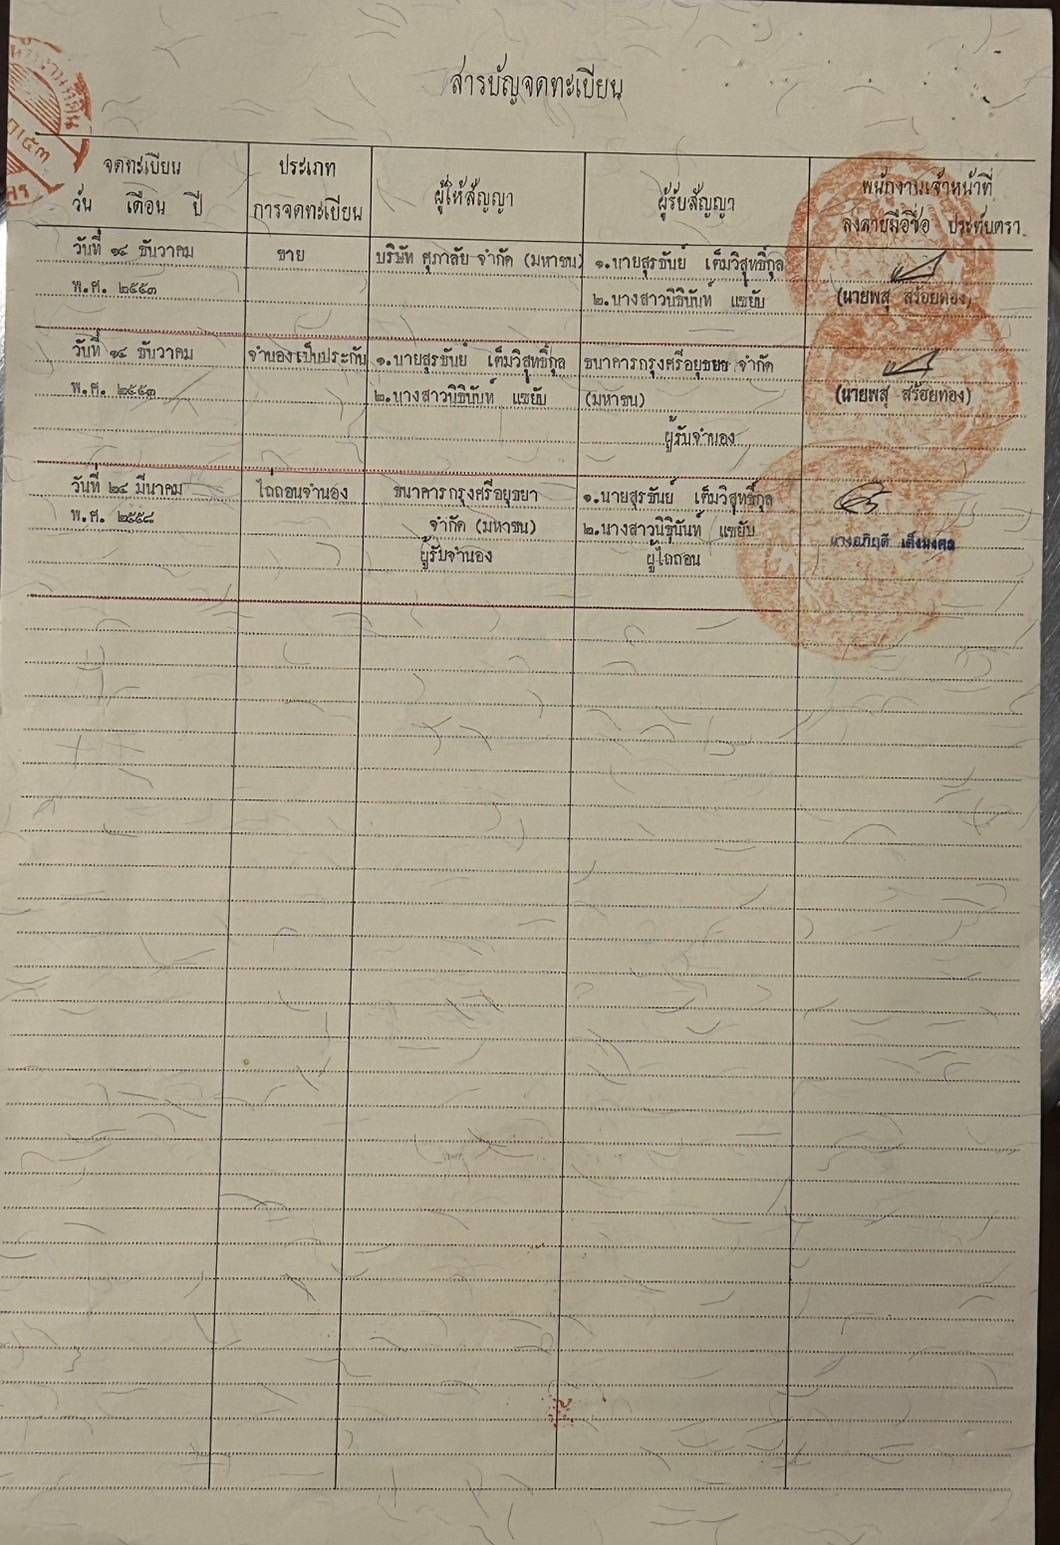 สารบัญจดทะเบียน
จดทะเบียน
วัน เดือน ปี
ประเภท
การจดทะเบียน
ผู้ให้สัญญา
ผู้รับสัญญา
พนักงานเจ้าหน้าที่
ลงลายมือชื่อ ประทับตรา
วันที่ ๑๔ ธันวาคม
พ.ศ. ๒๕๕๓
ขาย
บริษัท ศุภาลัย จำกัด (มหาชน)
๑.นายสุรชันย์ เต็มวิสุทธิ์กุล
๒.นางสาวนิธินันท์ แซยับ
(นายพสุ สร้อยทอง)
วันที่ ๑๔ ธันวาคม
พ.ศ. ๒๕๕๓
จำนองเป็นประกัน
๑.นายสุรชันย์ เต็มวิสุทธิ์กุล
๒.นางสาวนิธินันท์ แซยับ
ธนาคารกรุงศรีอยุธยา จำกัด
(มหาชน)
ผู้รับจำนอง
(นายพสุ สร้อยทอง)
วันที่ ๒๔ มีนาคม
พ.ศ. ๒๕๕๘
ไถ่ถอนจำนอง
ธนาคารกรุงศรีอยุธยา
จำกัด (มหาชน)
ผู้รับจำนอง
๑.นายสุรชันย์ เต็มวิสุทธิ์กุล
๒.นางสาวนิธินันท์ แซยับ
ผู้ไถ่ถอน